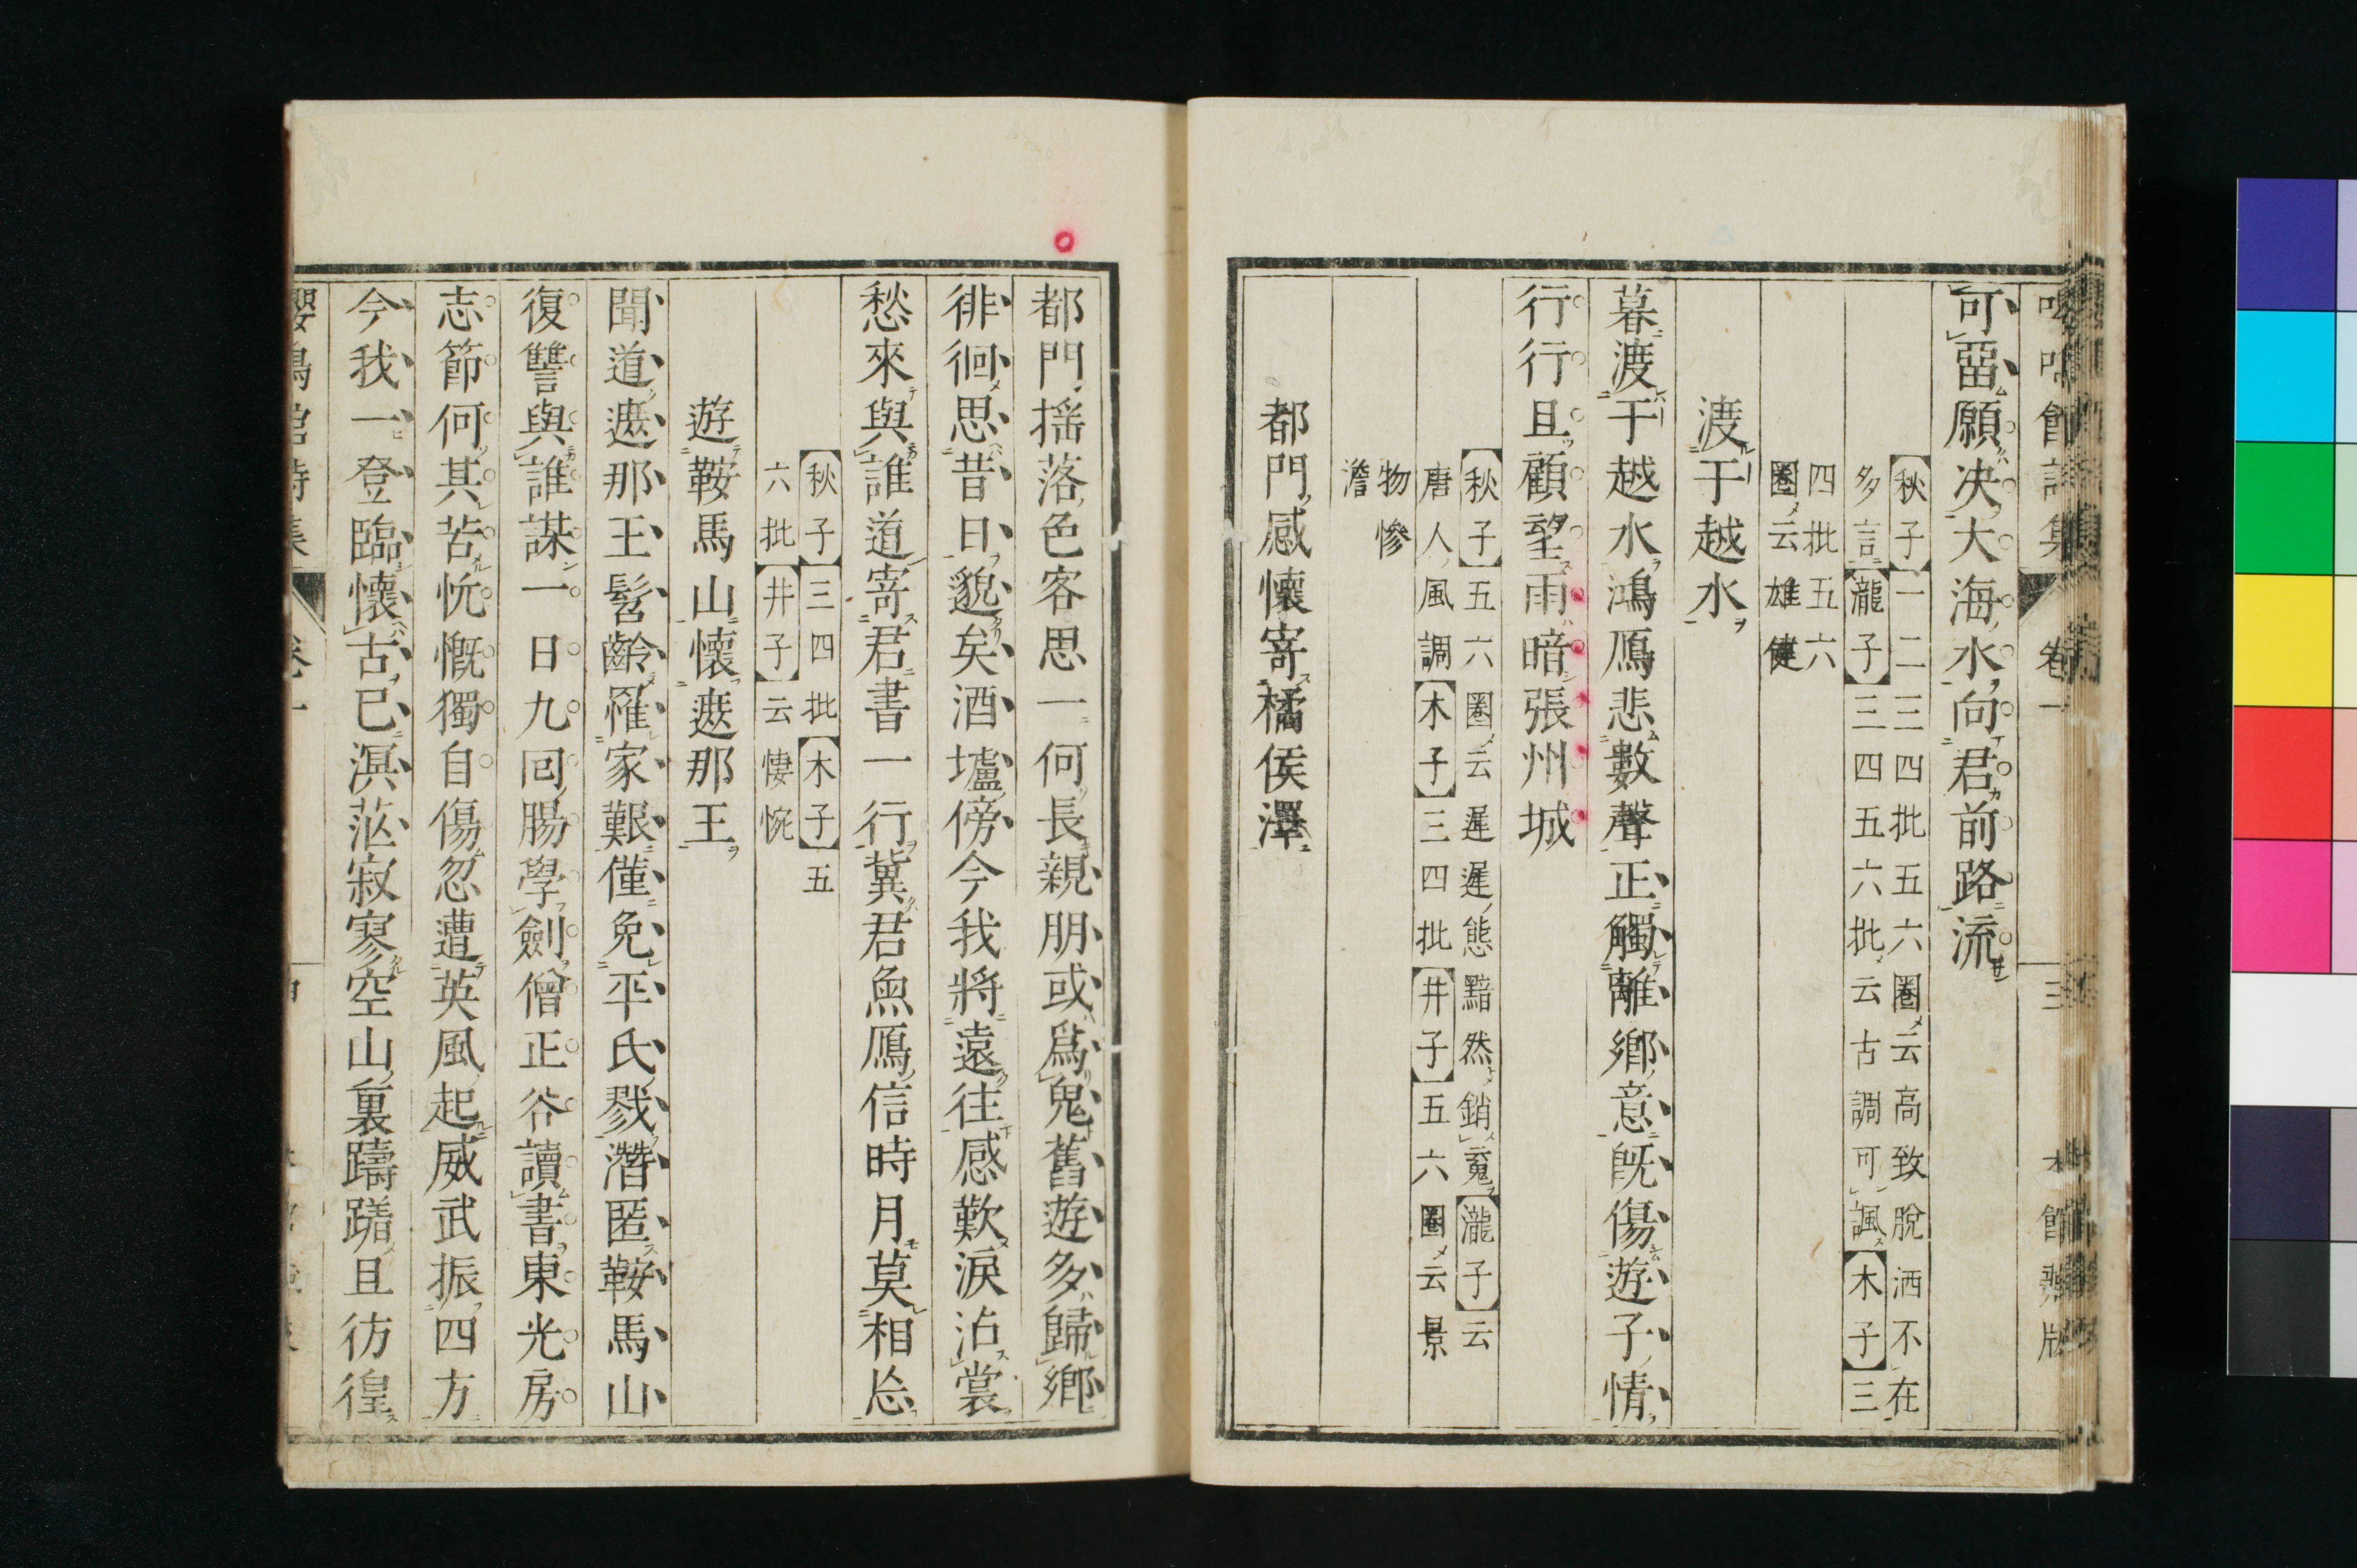 可惡願决大海水向君前路流
【秋子】一二三四批五六圈云高致脫洒不在
多言【瀧子】三四五六批云古調可諷【木子】三
四批五六
圈云雄健
渡于越水
暮渡于越水鴻鴈悲數聲正觸離鄉意既傷遊子情
行行且顧望雨暗張州城
【秋子】五六圈云遲遲態黯然銷䰟【瀧子】云
唐人風調【木子】三四批【井子】五六圈云景
物慘
澹
都門感懷寄橘侯澤
都門揺落色客思一何長親朋或爲鬼舊遊多歸鄉
徘徊思昔日貌矣酒壚傍今我將遠往感歎淚沾裳
愁來與誰道寄君書一行冀君魚鴈信時月莫相忘
【秋子】三四批【木子】五
六批【井子】云悽惋
遊鞍馬山懷遮那王
聞道遮那王髫齡罹家艱僅免平氏戮潛匿鞍馬山
復讐與誰謀一日九回腸學劍僧正谷讀書東光房
志節何其苦忼慨獨自傷忽遭英風起威武振四方
今我一登臨懷古已溟茫寂寥空山裏躊躇且彷徨